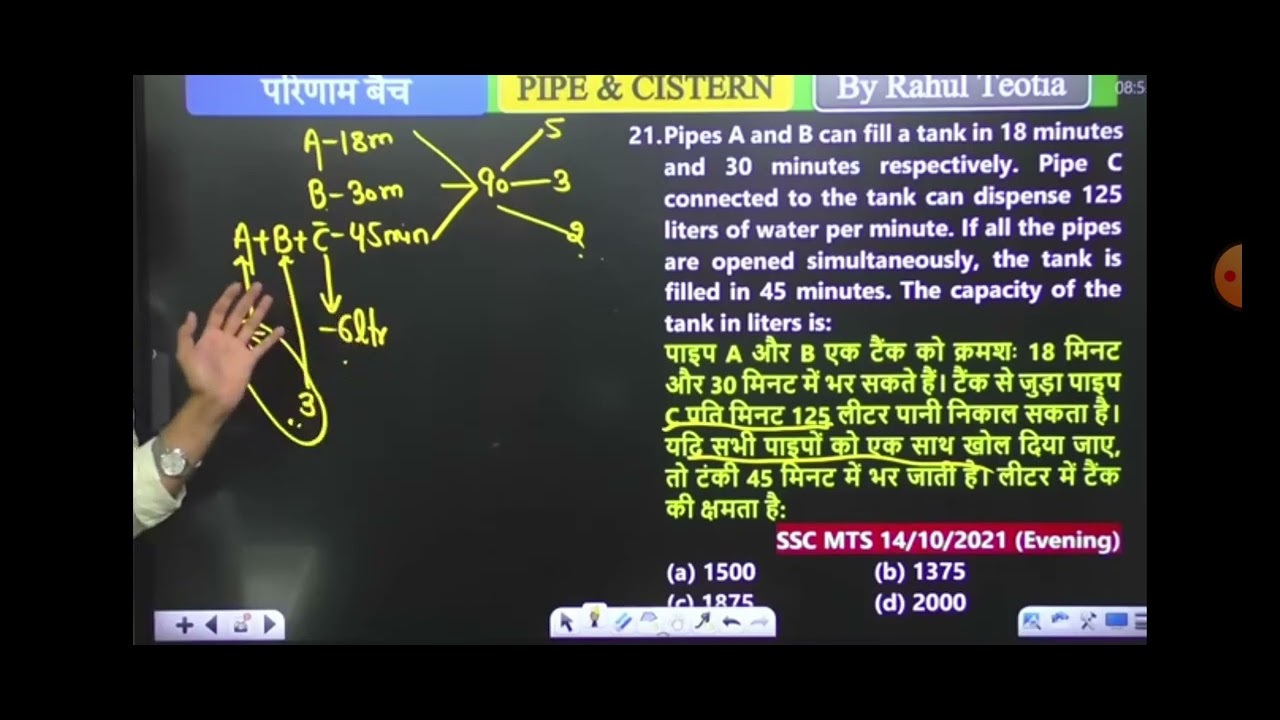 परिणाम बैच
PIPE & CISTERN
By Rahul Teotia
08:5
A-18m
B-30m
A+B+C-45min
90
5
3
2
-6ltr
3
21.Pipes A and B can fill a tank in 18 minutes
and 30 minutes respectively. Pipe C
connected to the tank can dispense 125
liters of water per minute. If all the pipes
are opened simultaneously, the tank is
filled in 45 minutes. The capacity of the
tank in liters is:
पाइप A और B एक टैंक को क्रमशः 18 मिनट
और 30 मिनट में भर सकते हैं। टैंक से जुड़ा पाइप
C प्रति मिनट 125 लीटर पानी निकाल सकता है।
यदि सभी पाइपों को एक साथ खोल दिया जाए,
तो टंकी 45 मिनट में भर जाती है। लीटर में टैंक
की क्षमता है:
SSC MTS 14/10/2021 (Evening)
(a) 1500 (b) 1375
(c) 1875 (d) 2000